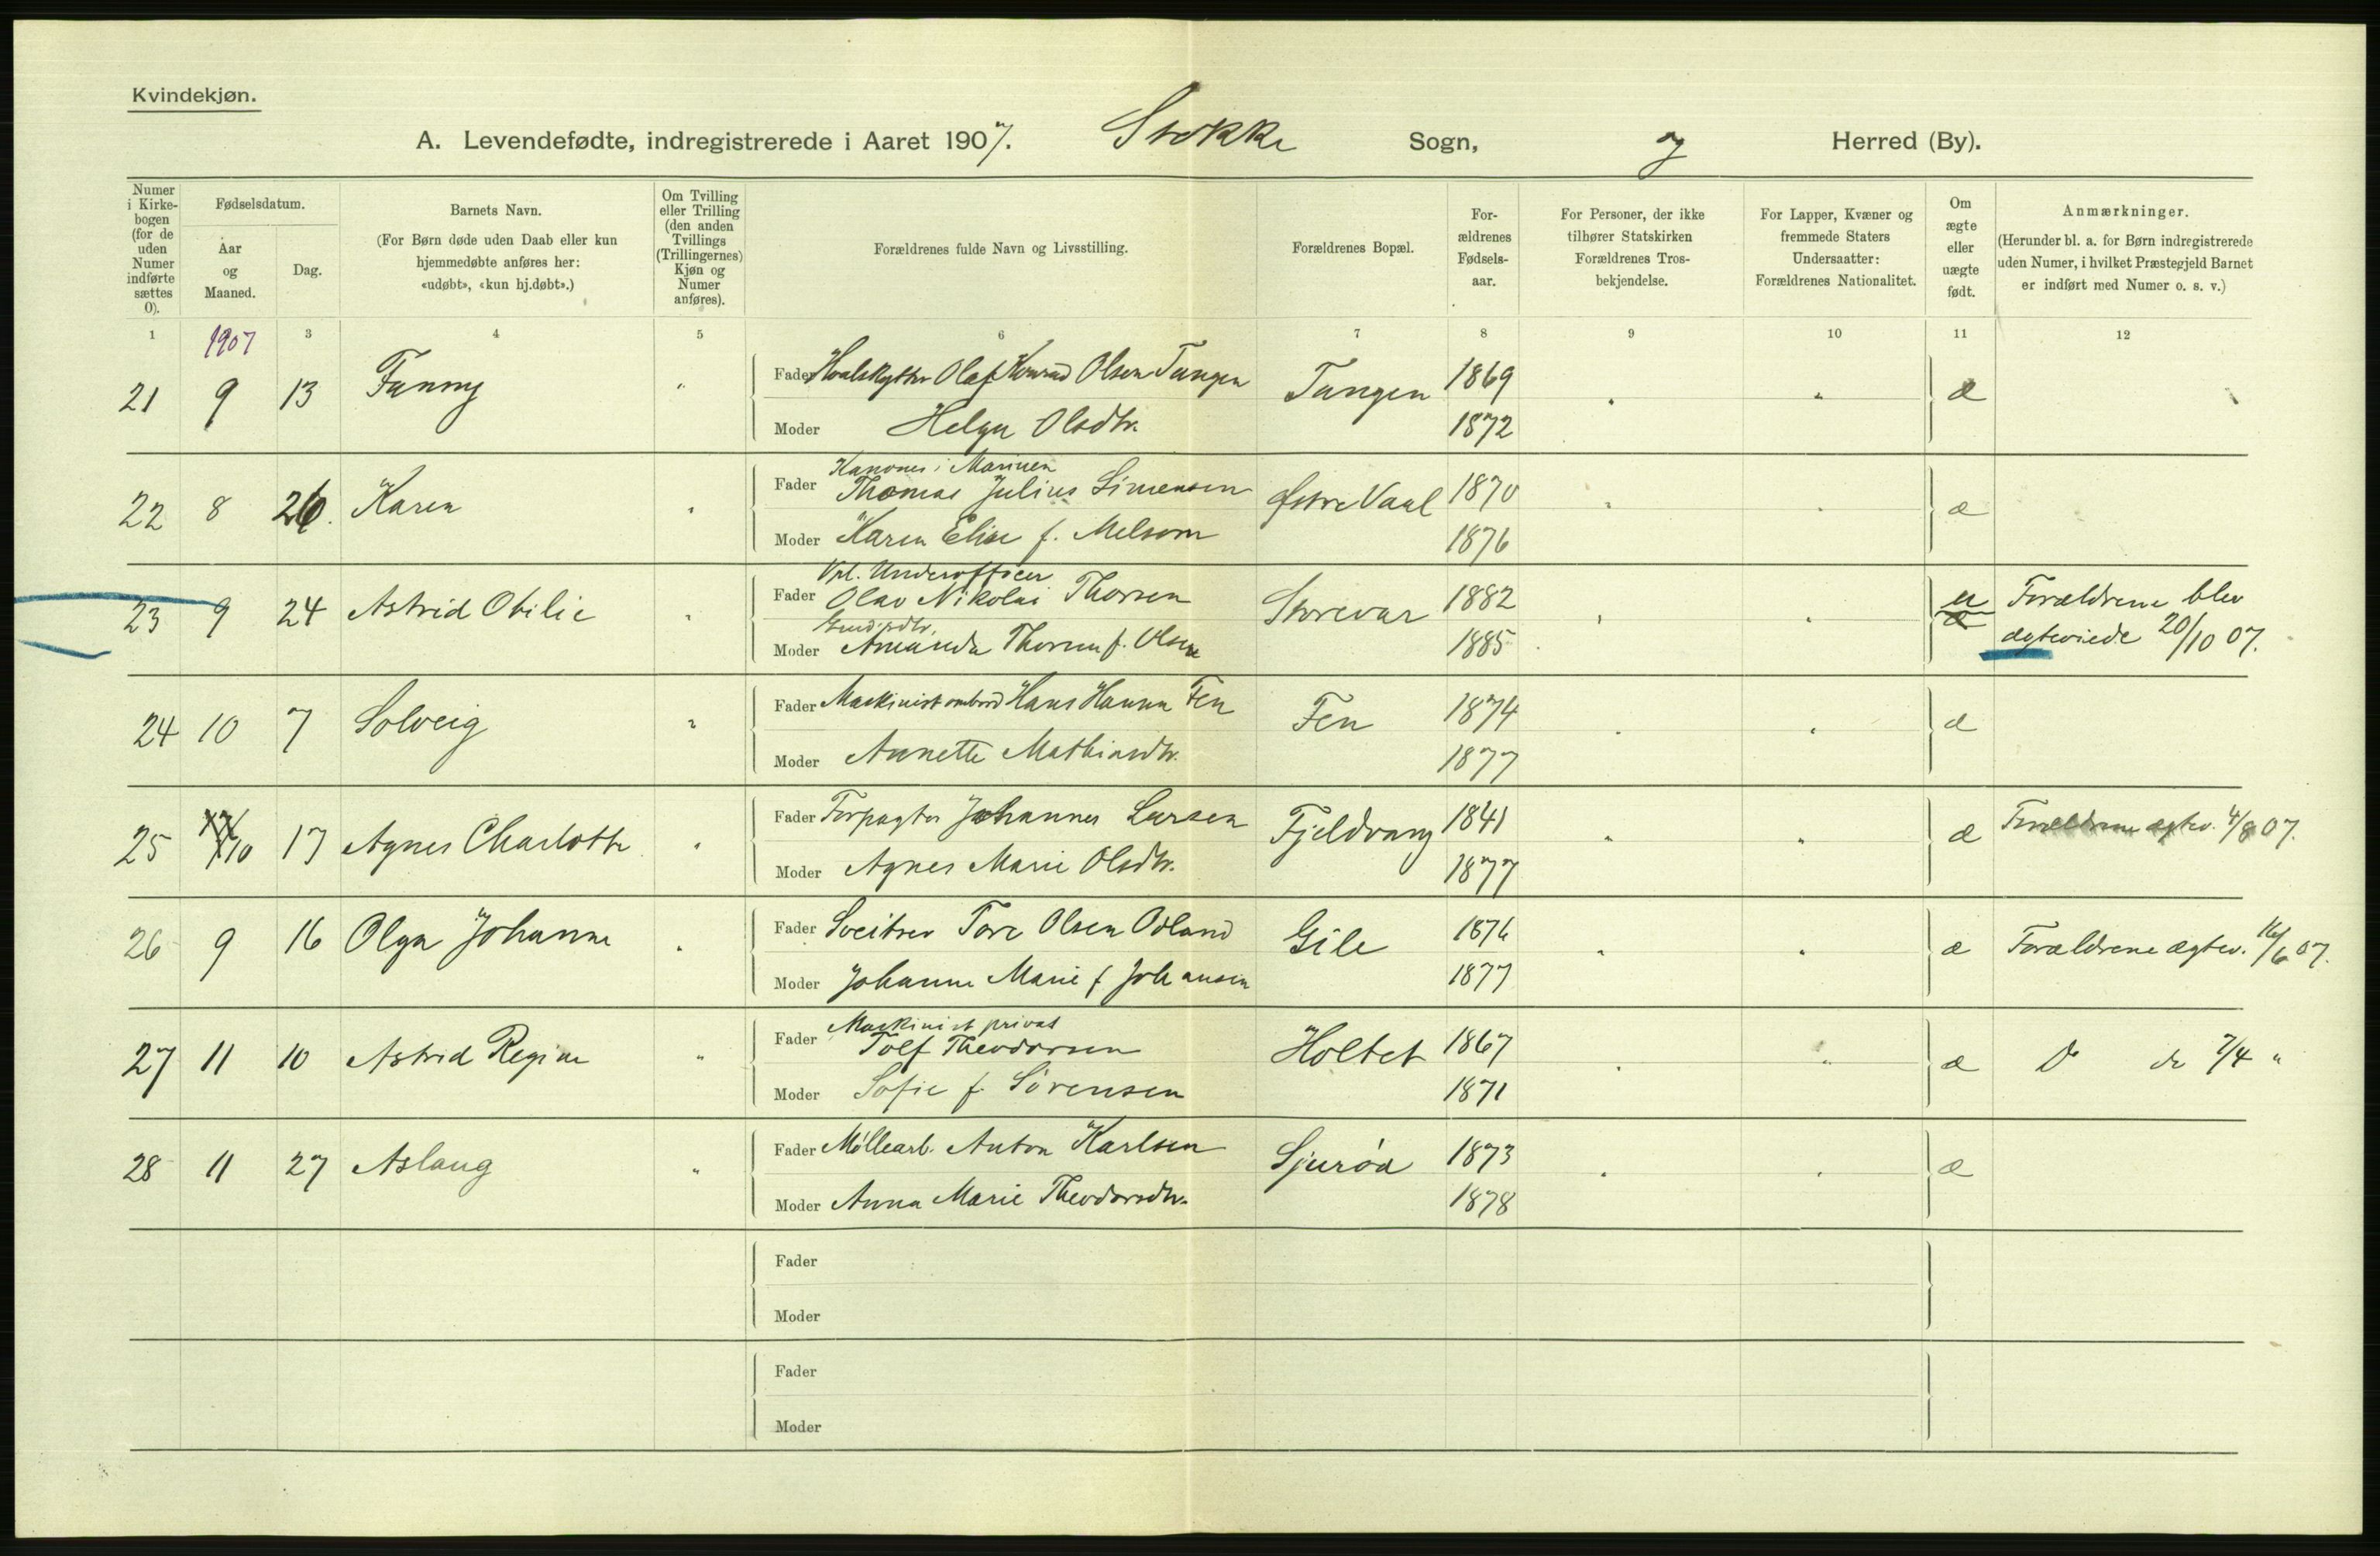 Kvindekjøn.
A. Levendefødte, indregistrerede i Aaret 1907. Stokke Sogn, og Herred (By).
Numer i Kirke-bogen (for de uden Numer indførte sættes 0).
Fødselsdatum.
Aar og Maaned.
Dag.
Barnets Navn.
(For Børn døde uden Daab eller kun hjemmedøbte anføres her: «udøbt», «kun hj.døbt».)
Om Tvilling eller Trilling (den anden Tvillings (Trillingernes) Kjøn og Numer anføres).
Forældrenes fulde Navn og Livsstilling.
Forældrenes Bopæl.
For-ældrenes Fødsels-aar.
For Personer, der ikke tilhører Statskirken Forældrenes Tros-bekjendelse.
For Lapper, Kvæner og fremmede Staters Undersaatter: Forældrenes Nationalitet.
Om ægte eller uægte født.
Anmærkninger.
(Herunder bl. a. for Børn indregistrerede uden Numer, i hvilket Præstegjeld Barnet er indført med Numer o. s. v.)
1 1907 3 4 5 6 7 8 9 10 11 12
21 9 13 Fanny " Fader Hvalskytter Olaf Konrad Olsen Tangen Tangen 1869 " " æ
Moder Helga Olsdtr. 1872
Kanoner i Marinen
22 8 26. Karen " Fader Thomas Julius Simensen Østre Vaal 1870 " " æ
Moder Karen Elise f. Melsom 1876
Vpl. Underofficer
23 9 24 Astrid Otilie " Fader Olav Nikolai Thorsen Storevar 1882 " " u æ Forældrene blev
Moder Amanda Thorsen f. Olsen 1885 ægteviede 20/10 07.
24 10 7 Solveig " Fader Maskinist ombord Hans Hansen Fen Fen 1874 " " æ
Moder Annette Mathiasdtr. 1877
25 10 17 Agnes Charlotte " Fader Forpagter Johannes Larsen Fjeldvang 1841 " " æ Forældrene ægtev. 4/8 07.
Moder Agnes Marie Olsdtr. 1877
26 9 16 Olga Johanne " Fader Sveitser Tore Olsen Odland Gile 1876 " " æ Forældrene ægtev. 16/6 07.
Moder Johanne Marie f Johansen 1877
Maskinist privat
27 11 10 Astrid Regine " Fader Tolf Theodorsen Holtet 1867 " " æ Do do 7/4 "
Moder Sofie f. Sørensen 1871
28 11 27 Aslaug " Fader Møllearb. Anton Karlsen Sjurød 1873 " " æ
Moder Anna Marie Theodorsdtr. 1878
Fader
Moder
Fader
Moder